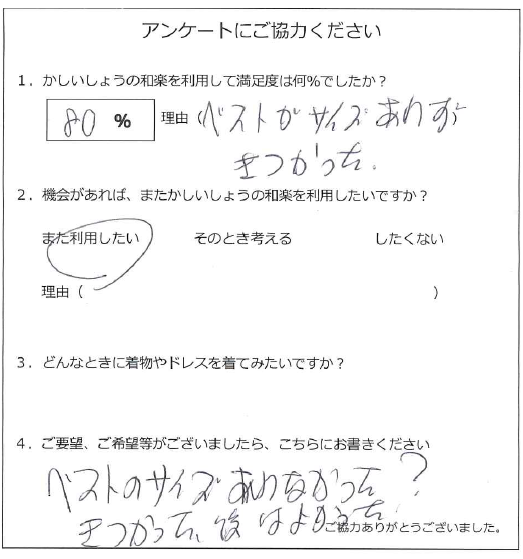 アンケートにご協力ください
1．かしいしょうの和楽を利用して満足度は何％でしたか？
80 % 理由（ベストがサイズありすぎ
きつかった．
2．機会があれば、またかしいしょうの和楽を利用したいですか？
また利用したい そのとき考える したくない
理由（ ）
3．どんなときに着物やドレスを着てみたいですか？
4．ご要望、ご希望等がございましたら、こちらにお書きください
ベストのサイズあわなかった？
きつかった、後はよかった
ご協力ありがとうございました。